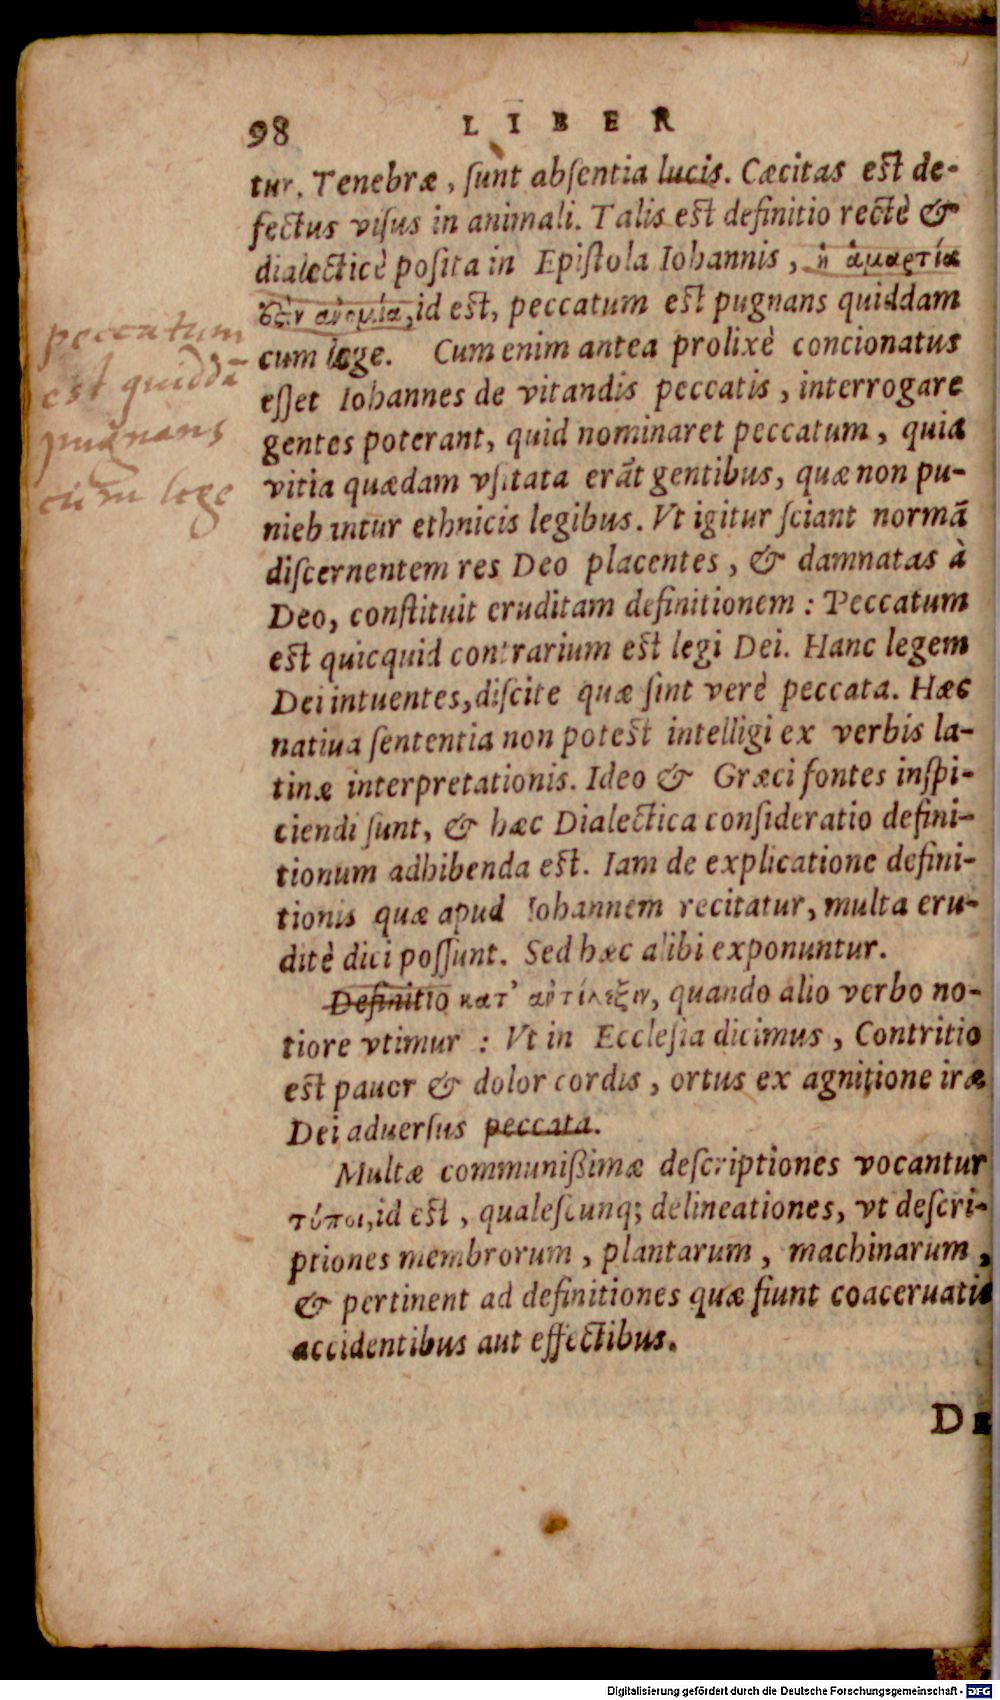 98 LIBER
tur. Tenebræ, ſunt abſentia lucis. Cæcitas est de-
fectus viſus in animali. Talis est definitio rectè &
dialecticè poſita in Epiſtola Iohannis, ἡ ἁμαρτία
ἐςὶν ἀνομία, id est, peccatum est pugnans quiddam
cum lege. Cum enim antea prolixè concionatus
eſſet Iohannes de vitandis peccatis, interrogare
gentes poterant, quid nominaret peccatum, quia
vitia quædam vſitata erāt gentibus, quæ non pu-
niebantur ethnicis legibus. Vt igitur ſciant normā
diſcernentem res Deo placentes, & damnatas à
Deo, conſtituit eruditam definitionem: Peccatum
est quicquid contrarium est legi Dei. Hanc legem
Dei intuentes, diſcite quæ ſint verè peccata. Hæc
natiua ſententia non potest intelligi ex verbis la-
tinæ interpretationis. Ideo & Græci fontes inſpi-
ciendi ſunt, & hæc Dialectica conſideratio defini-
tionum adhibenda est. Iam de explicatione defini-
tionis quæ apud Iohannem recitatur, multa eru-
ditè dici poſſunt. Sed hæc alibi exponuntur.
Definitio κατ' ἀντίλεξιν, quando alio verbo no-
tiore vtimur: Vt in Eccleſia dicimus, Contritio
est pauor & dolor cordis, ortus ex agnitione iræ
Dei aduerſus peccata.
Multæ communißimæ deſcriptiones vocantur
τύποι, id est, qualeſcunq; delineationes, vt deſcri-
ptiones membrorum, plantarum, machinarum,
& pertinent ad definitiones quæ fiunt coaceruatis
accidentibus aut effectibus.
DE
peccatum
est quiddā
pugnans
cum lege
Digitalisierung gefördert durch die Deutsche Forschungsgemeinschaft - DFG